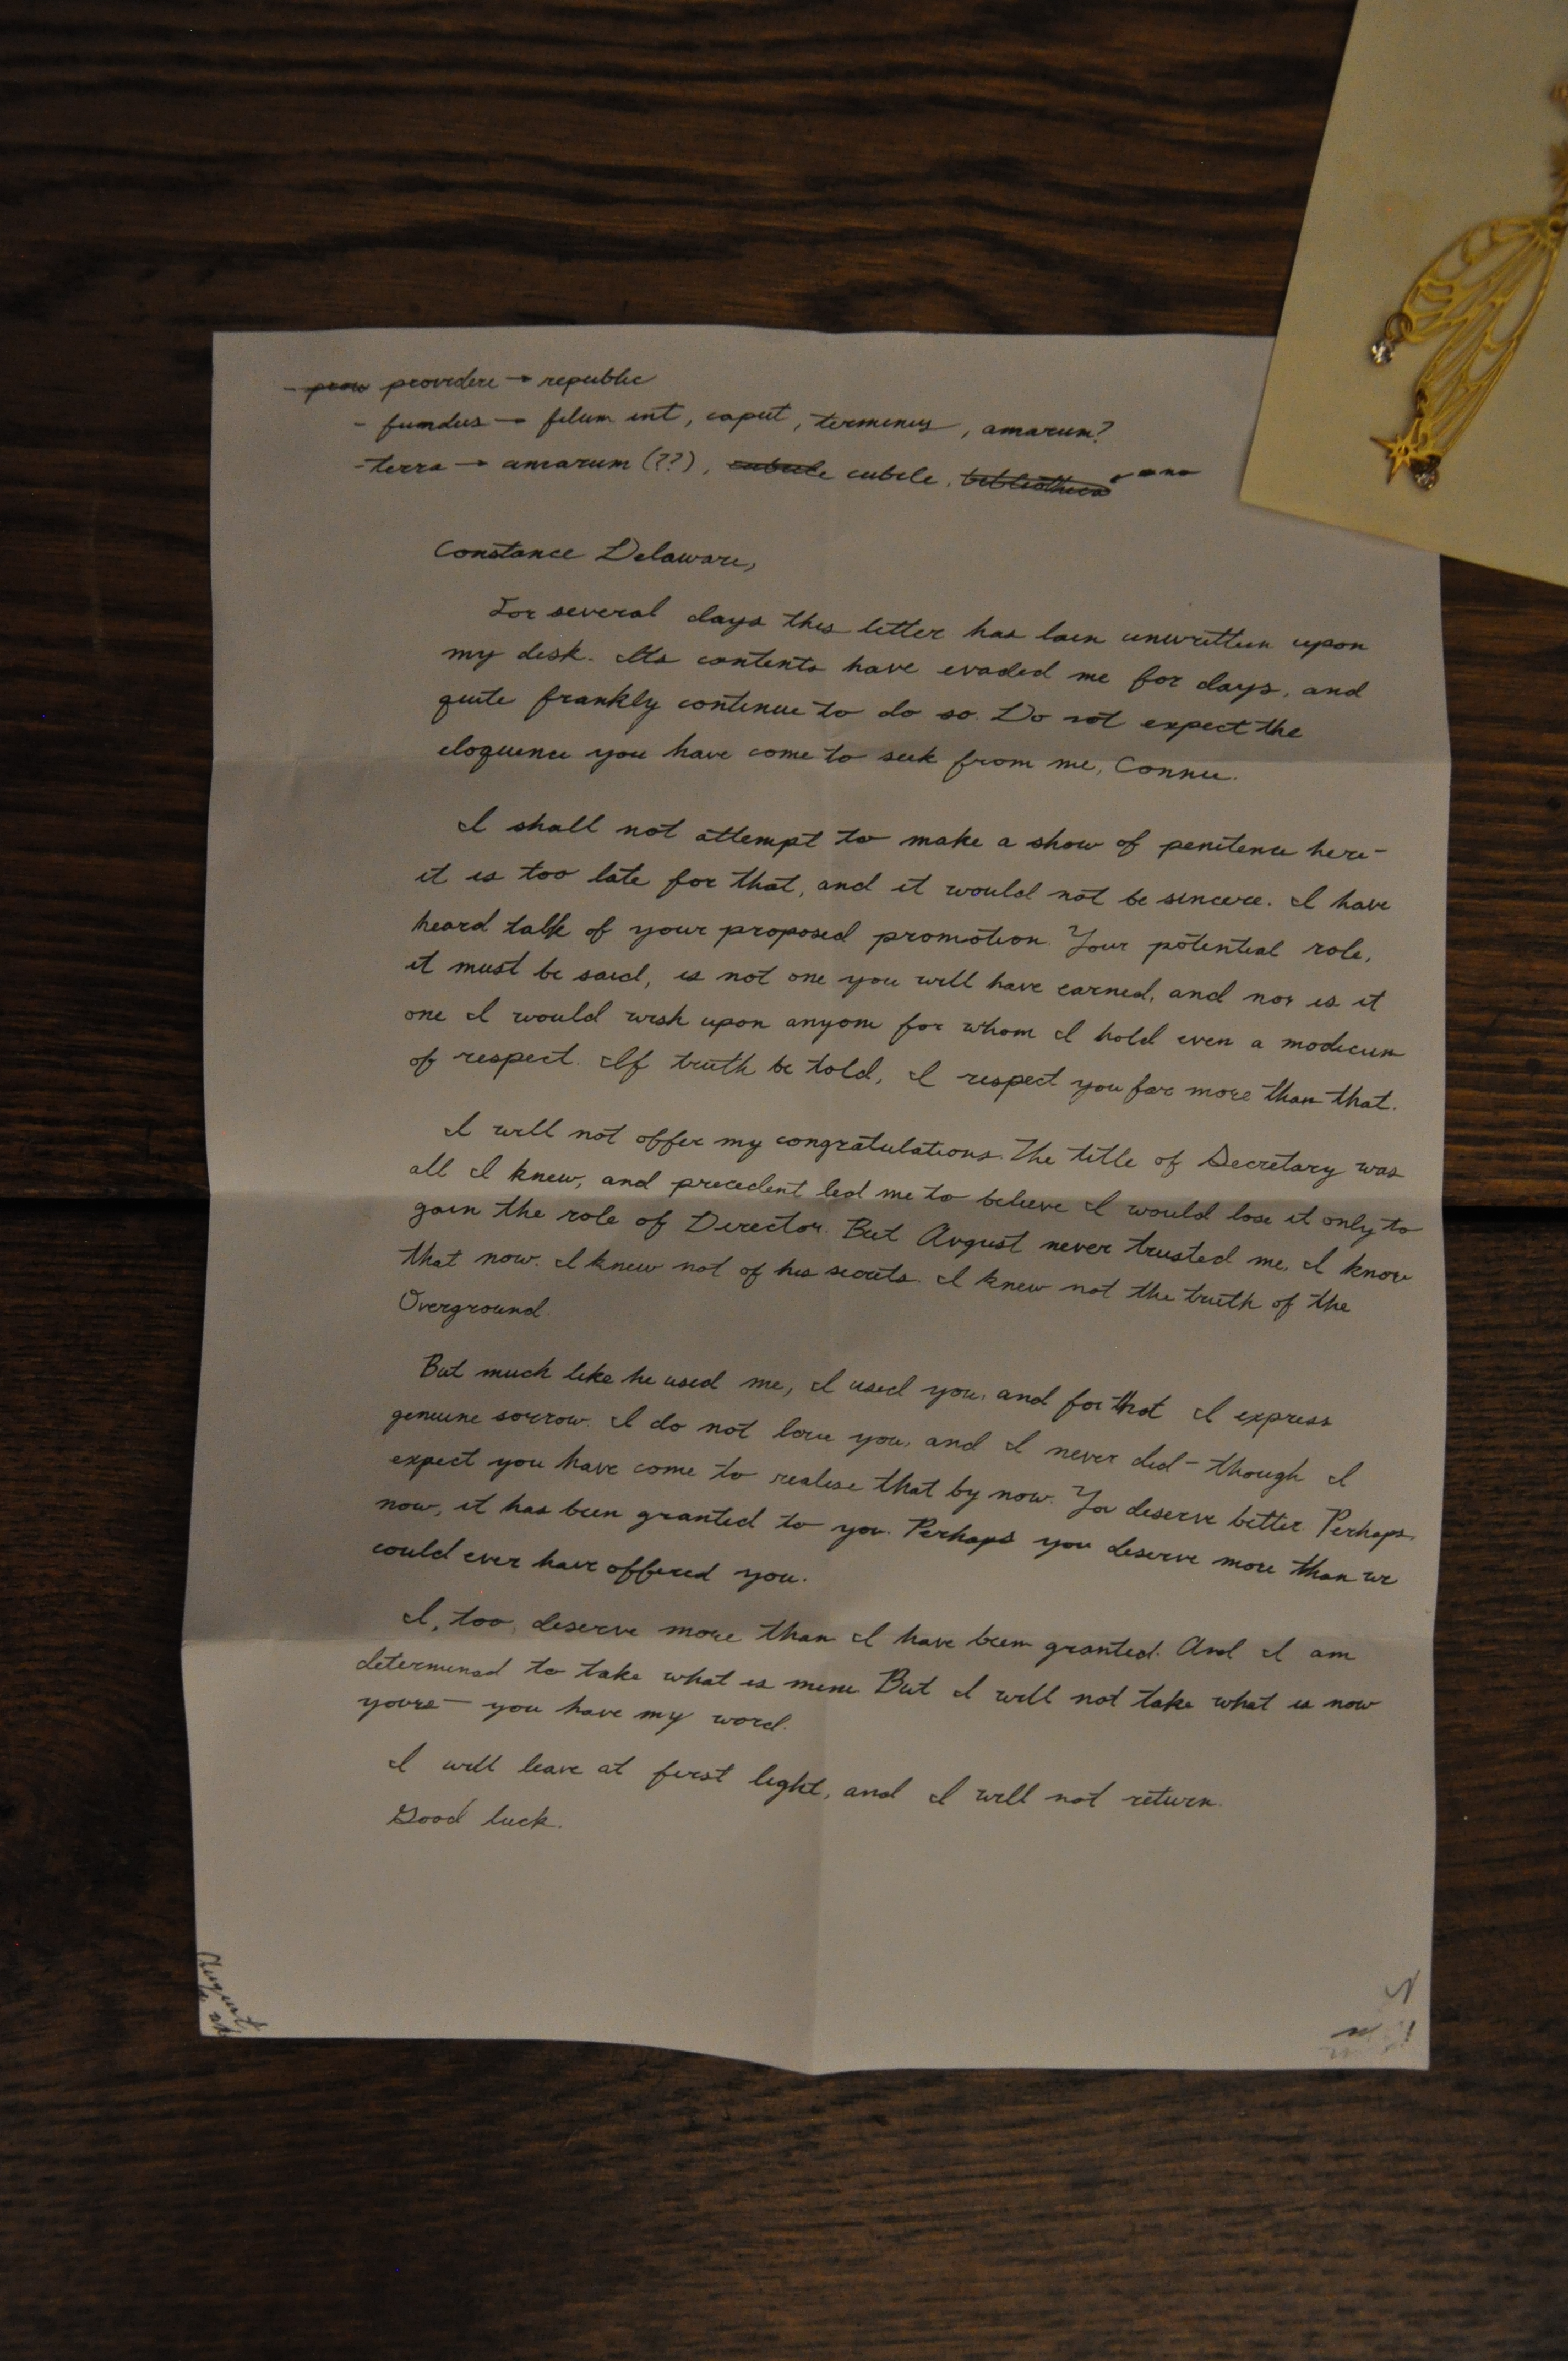 - providere → republic
- fundus → filum int, caput, terminus, amarum?
- terra → amarum (??), cubule cubile, bibliotheca no
Constance Delaware,
For several days this letter has lain unwritten upon
my desk. Its contents have evaded me for days, and
quite frankly continue to do so. Do not expect the
eloquence you have come to seek from me, Connie.
I shall not attempt to make a show of penitence here-
it is too late for that, and it would not be sincere. I have
heard talk of your proposed promotion. Your potential role,
it must be said, is not one you will have earned, and nor is it
one I would wish upon anyone for whom I hold even a modicum
of respect. If truth be told, I respect you far more than that.
I will not offer my congratulations. The title of Secretary was
all I knew, and precedent led me to believe I would lose it only to
gain the role of Director. But August never trusted me, I know
that now. I knew not of his secrets. I knew not the truth of the
Overground.
But much like he used me, I used you, and for that I express
genuine sorrow. I do not love you, and I never did - though I
expect you have come to realise that by now. You deserve better. Perhaps
now, it has been granted to you. Perhaps you deserve more than we
could ever have offered you.
I, too, deserve more than I have been granted. And I am
determined to take what is mine. But I will not take what is now
yours - you have my word.
I will leave at first light, and I will not return.
Good luck.
August